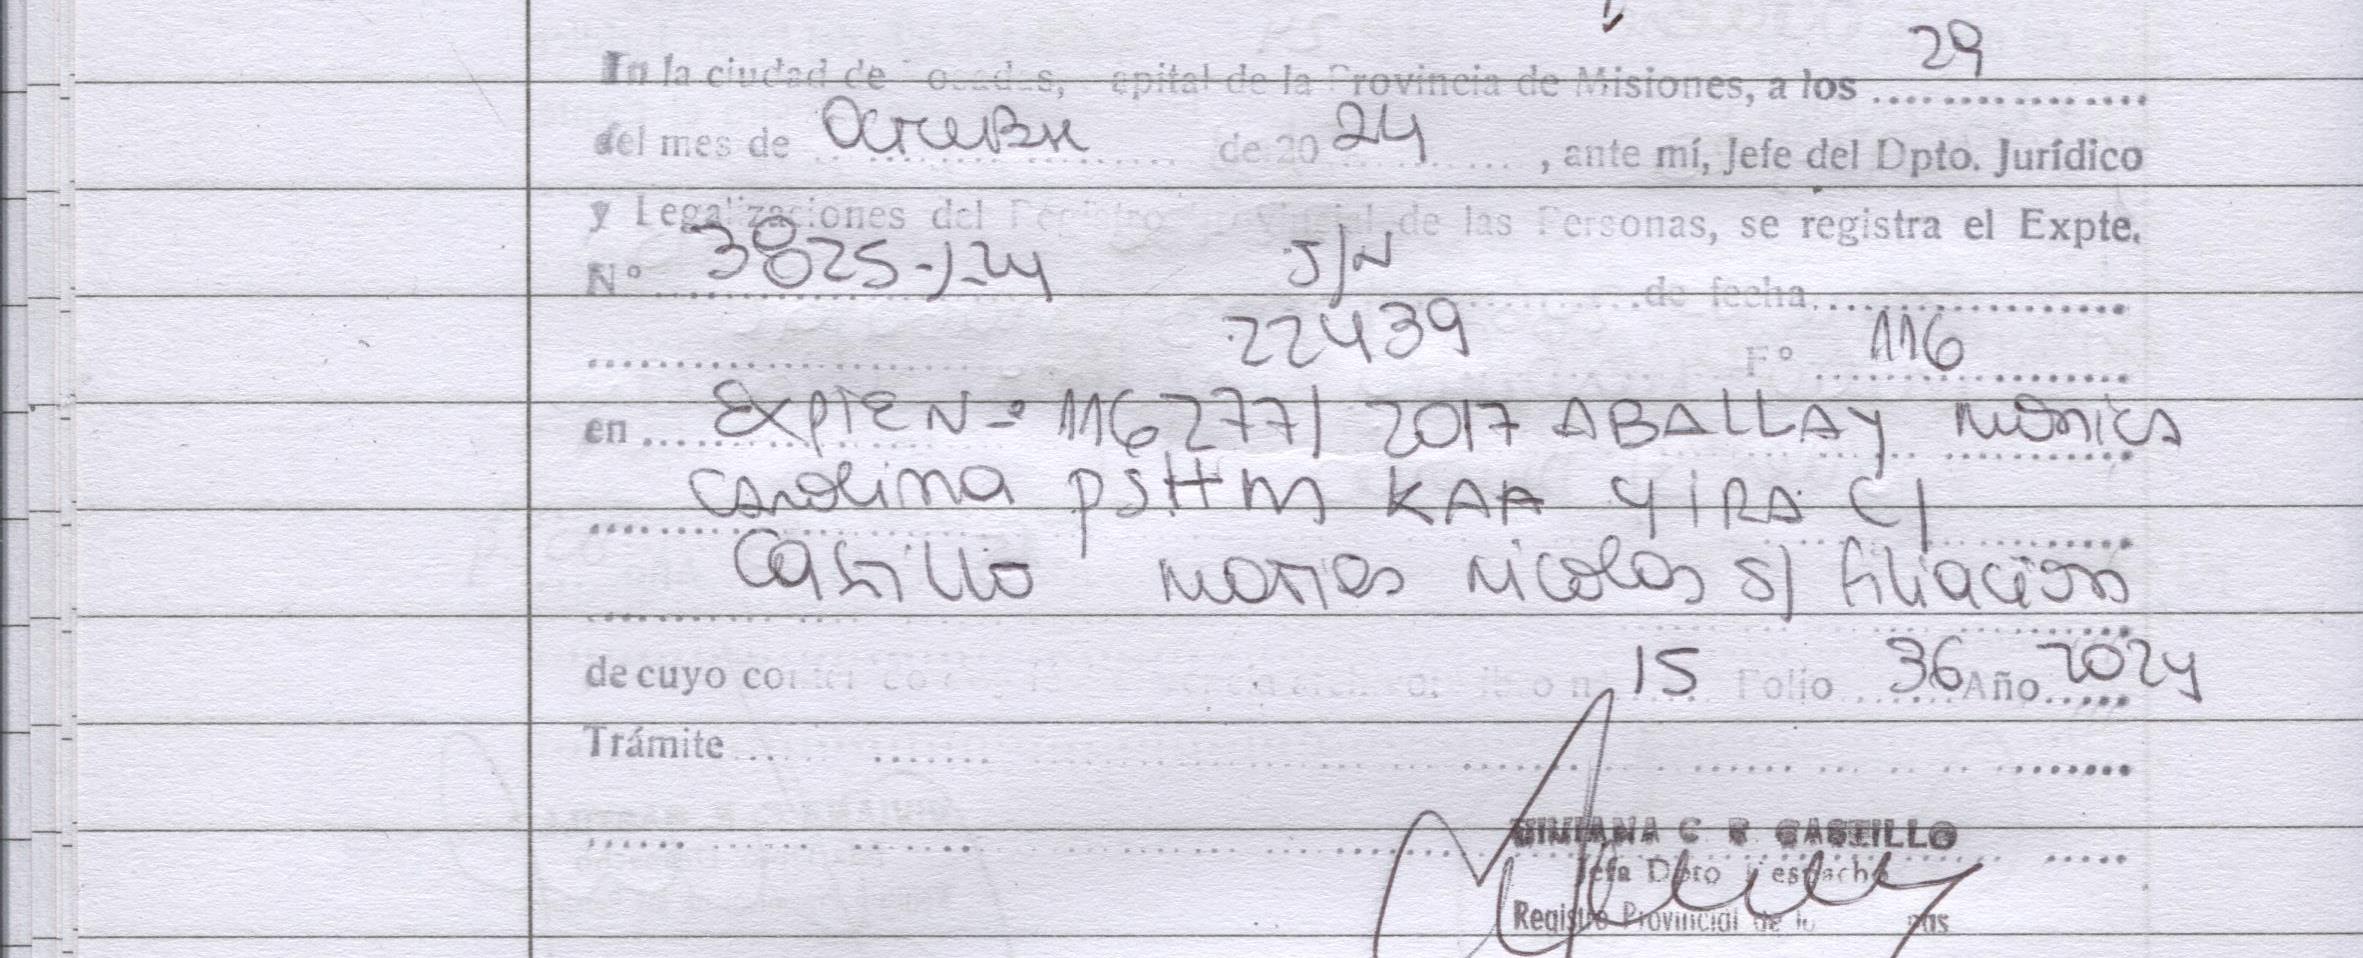 In la ciudad de Posadas, Capital de la Provincia de Misiones, a los 29
del mes de Octubre de 20 24, ante mí, Jefe del Dpto. Jurídico
y Legalizaciones del Registro Provincial de las Personas, se registra el Expte.
Nº 3825-J-24 S/N de fecha
22439 Fº 116
en Expte Nº 116277/2017 ABALLAY Monica
Carolina PSHM KAA YIRA C/
Castillo Matias Nicolas S/ filiacion
de cuyo 15 Folio 36 Año 2024
Trámite
VIVIANA C R CASTILLO
Jefa Dpto Despacho
Registro Provincial de